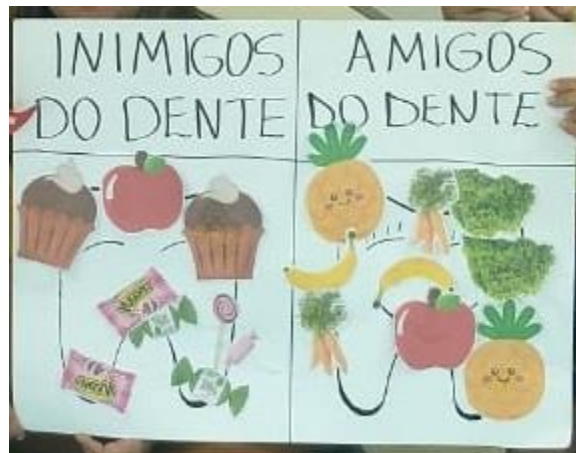 INIMIGOS
DO DENTE
AMIGOS
DO DENTE